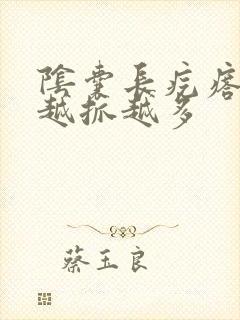 陰囊長疙瘩
越抓越多
蔡玉良